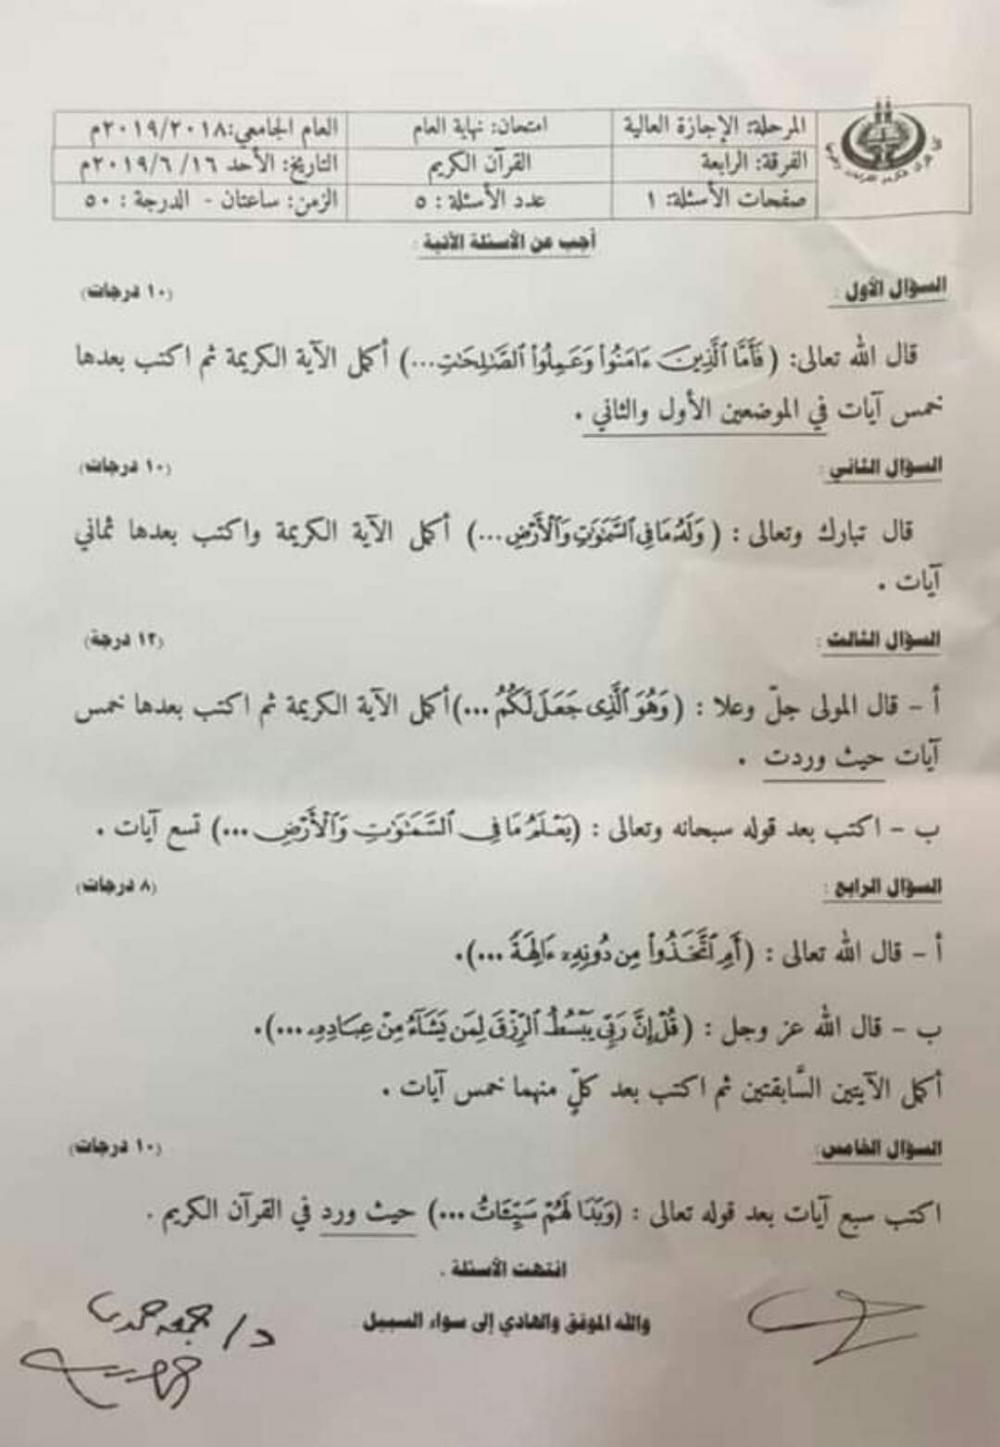 المرحلة: الإجازة العالية امتحان: نهاية العام العام الجامعي: ٢٠١٩/٢٠١٨م
الفرقة: الرابعة القرآن الكريم التاريخ: الأحد ١٦/ ٦/ ٢٠١٩م
صفحات الأسئلة: ١ عدد الأسئلة: ٥ الزمن: ساعتان - الدرجة: ٥٠
أجب عن الأسئلة الآتية :
السؤال الأول : (١٠ درجات)
قال الله تعالى: (فَأَمَّا ٱلَّذِينَ ءَامَنُواْ وَعَمِلُواْ ٱلصَّٰلِحَٰتِ...) أكمل الآية الكريمة ثم اكتب بعدها
خمس آيات في الموضعين الأول والثاني .
السؤال الثاني : (١٠ درجات)
قال تبارك وتعالى : (وَلَهُۥ مَا فِي ٱلسَّمَٰوَٰتِ وَٱلۡأَرۡضِ...) أكمل الآية الكريمة واكتب بعدها ثماني
آيات .
السؤال الثالث : (١٢ درجة)
أ - قال المولى جلّ وعلا : (وَهُوَ ٱلَّذِى جَعَلَ لَكُمُ ...) أكمل الآية الكريمة ثم اكتب بعدها خمس
آيات حيث وردت .
ب - اكتب بعد قوله سبحانه وتعالى : (يَعۡلَمُ مَا فِي ٱلسَّمَٰوَٰتِ وَٱلۡأَرۡضِ ...) تسع آيات .
السؤال الرابع : (٨ درجات)
أ - قال الله تعالى : (أَمِ ٱتَّخَذُواْ مِن دُونِهِۦٓ ءَالِهَةٗ ...).
ب - قال الله عز وجل : (قُلۡ إِنَّ رَبِّي يَبۡسُطُ ٱلرِّزۡقَ لِمَن يَشَآءُ مِنۡ عِبَادِهِۦ ...).
أكمل الآيتين السَّابقتين ثم اكتب بعد كلٍّ منهما خمس آيات .
السؤال الخامس: (١٠ درجات)
اكتب سبع آيات بعد قوله تعالى : (وَبَدَا لَهُمۡ سَيِّـَٔاتُ ...) حيث ورد في القرآن الكريم .
انتهت الأسئلة .
والله الموفق والهادي إلى سواء السبيل
د/ جمعه